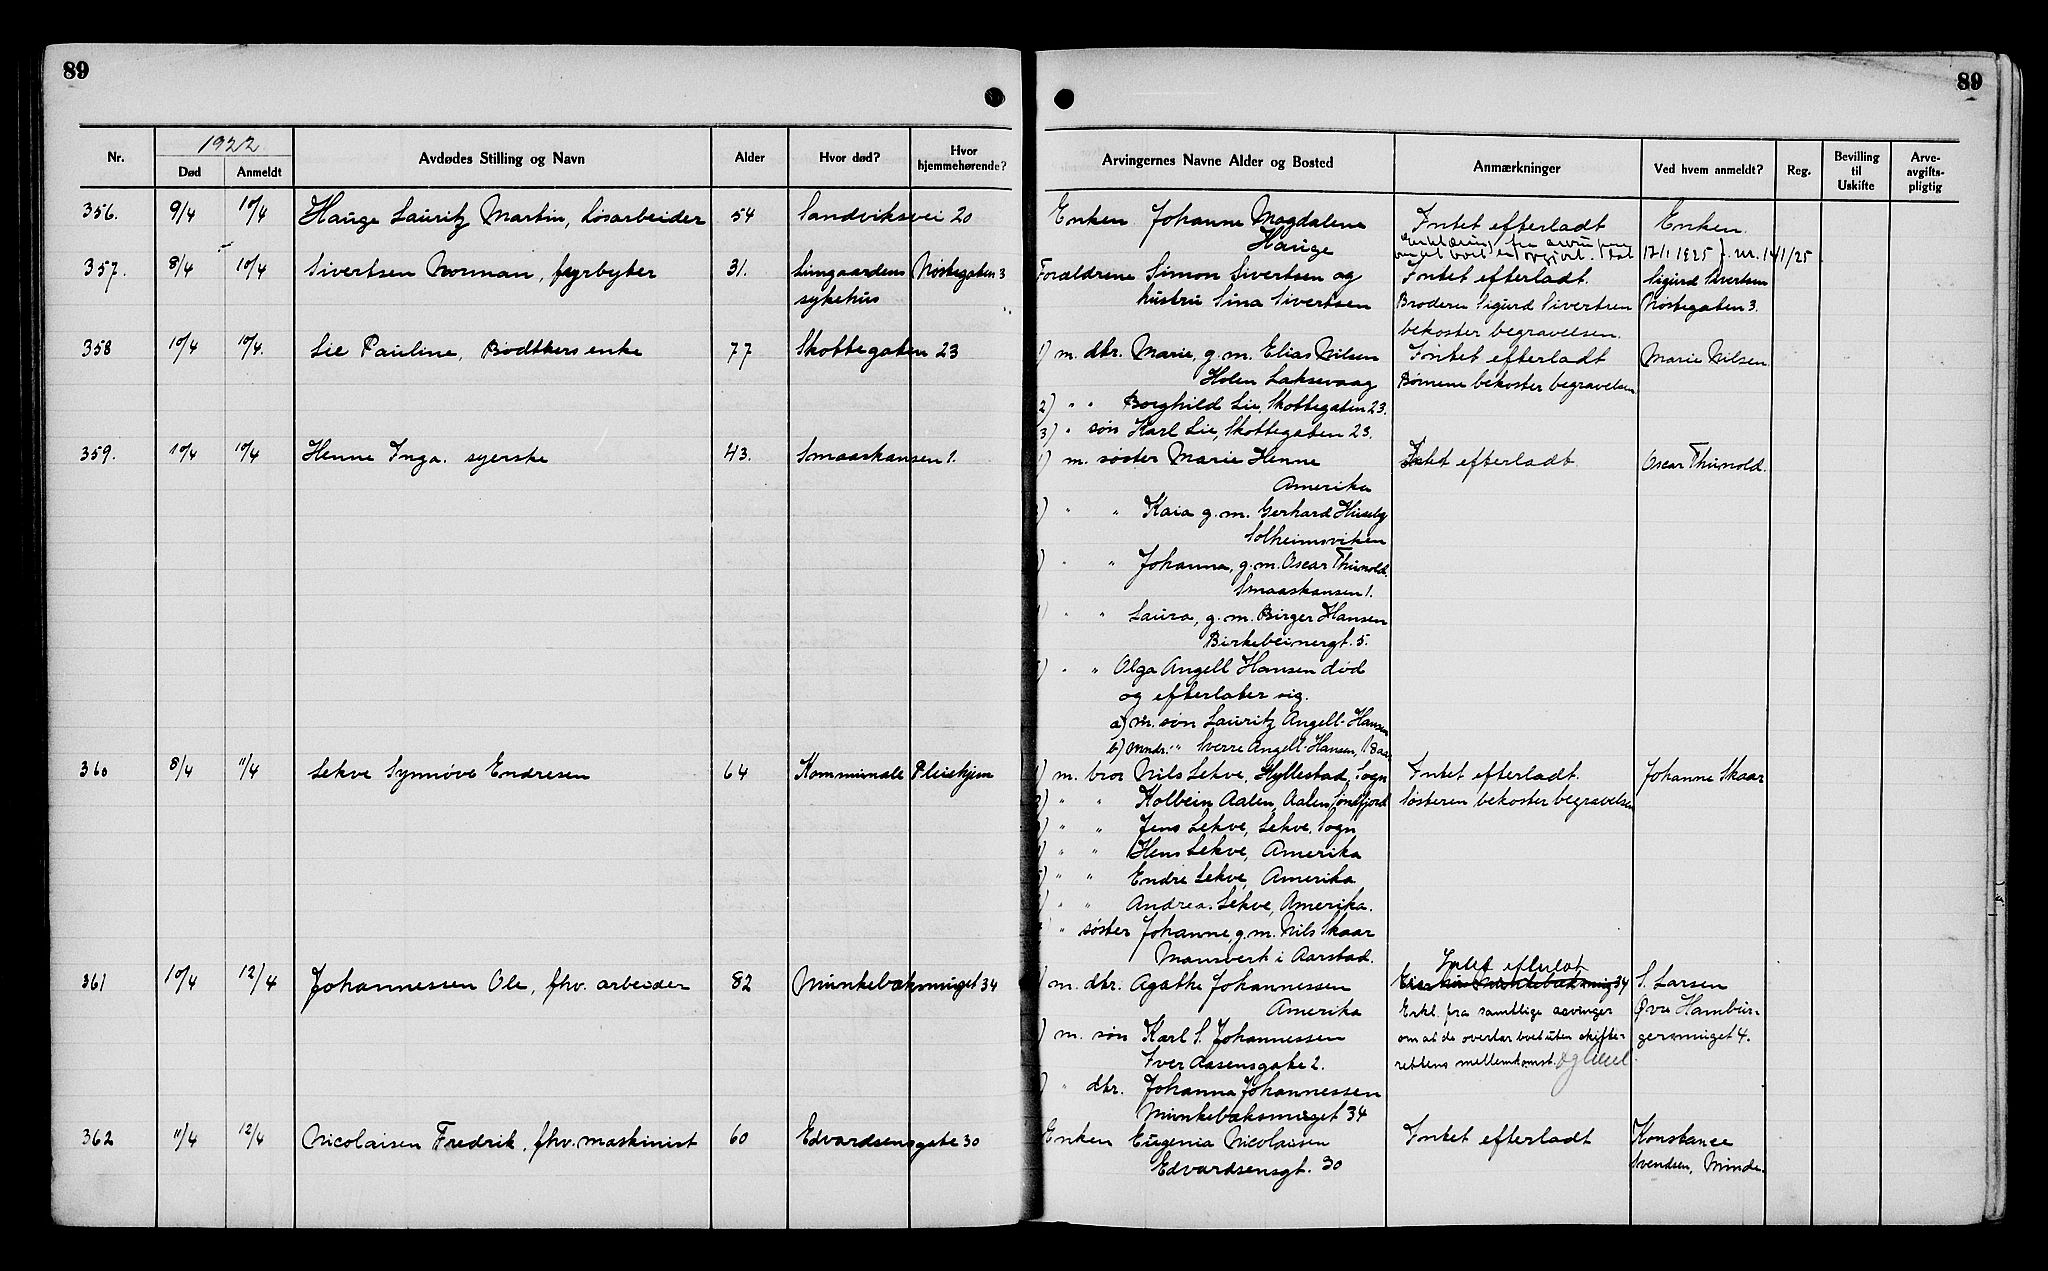 89
89
1922
Nr.
Død
Anmeldt
Avdødes Stilling og Navn
Alder
Hvor død?
Hvor hjemmehørende?
Arvingernes Navne Alder og Bosted
Anmærkninger
Ved hvem anmeldt?
Reg.
Bevilling til Uskifte
Arve-avgifts-pligtig
356. 9/4 10/4 Hauge Lauritz Martin, løsarbeider 54 Sandviksvei 20 Enken Johanne Magdalene Intet efterladt Enken.
Hauge
357. 8/4 10/4 Sivertsen Norman, fyrbøter 31. Lungaardens Nøstegaten 3 Forældrene Simon Sivertsen og Intet efterladt. Sigurd Sivertsen
sykehus hustru Sina Sivertsen Broderen Sigurd Sivertsen Nøstegaten 3.
bekoster begravelsen.
358 10/4 10/4. Lie Pauline, Bødtkers enke 77 Skottegaten 23 1) m. dtr. Marie, g.m. Elias Nilsen Intet efterladt Marie Nilsen.
Holen Laksevaag Børnene bekoster begravelsen
2) " " Borghild Lie, Skottegaten 23.
3) " søn Karl Lie, Skottegaten 23.
359. 10/4 10/4 Henne Inga. syerske 43. Smaaskansen 1. 1) m. søster Marie Henne Intet efterladt Oscar Thunold.
Amerika
" " Kaia g.m. Gerhard Huseby
Solheimsviken
" " Johanna, g.m. Oscar Thunold.
Smaaskansen 1.
" " Laura, g.m. Birger Hansen
Birkebeinergt. 5.
" " Olga Angell Hansen død
og efterlater sig.
a) m. søn Lauritz Angell-Hansen
b) mndr. " Sverre Angell-Hansen, 18 aar
360 8/4 11/4 Lekve Synnøve Endresen 64 Kommunale Pleiehjem 1) m. bror Nils Lekve, Hyllestad, Sogn Intet efterladt. Johanne Skaar
2) " " Kolbein Aalen, Aalen Søndfjord Søsteren bekoster begravelsen
" " Jens Lekve, Lekve, Sogn
" " Hans Lekve, Amerika
" " Endre Lekve, Amerika
" " Andrea. Lekve, Amerika.
" søster Johanne, g.m. Nils Skaar
Mansverk i Aarstad.
361 10/4 12/4 Johannessen Ole, fhv. arbeider 82 Munkebæksmuget 34 m. dtr. Agathe Johannessen Intet efterlat S. Larsen
Amerika Erkl. fra samtlige arvinger Øvre Hambur-
m. søn Karl S. Johannessen om at de overtar boet uten skifte- germuget 4.
Iver Aasensgate 2. rettens mellemkomst.
" dtr. Johanna Johannessen
Munkebæksmuget 34
362 11/4 12/4 Nicolaisen Fredrik, fhv. maskinist 60 Edvardsensgate 30 Enken Eugenia Nicolaisen Intet efterladt Konstance
Edvardsensgt. 30 Svendsen, Minde.